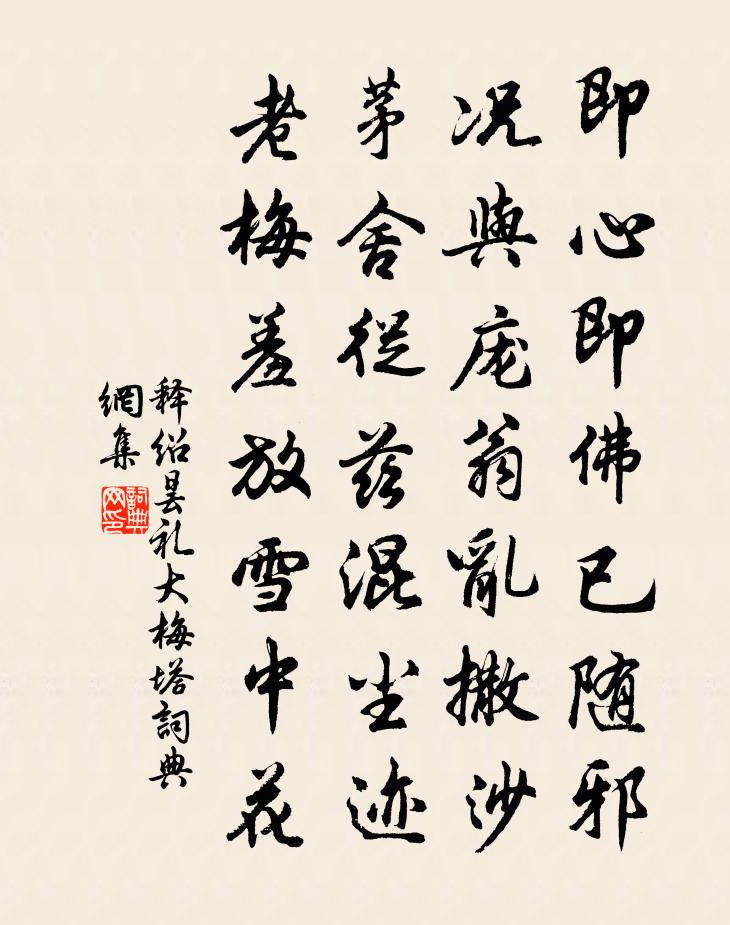 即心即佛已随邪
况與庞翁亂撒沙
茅舍從兹混尘迹
老梅羞放雪中花
释绍昙礼大梅塔詞典
網集
詞典
网印